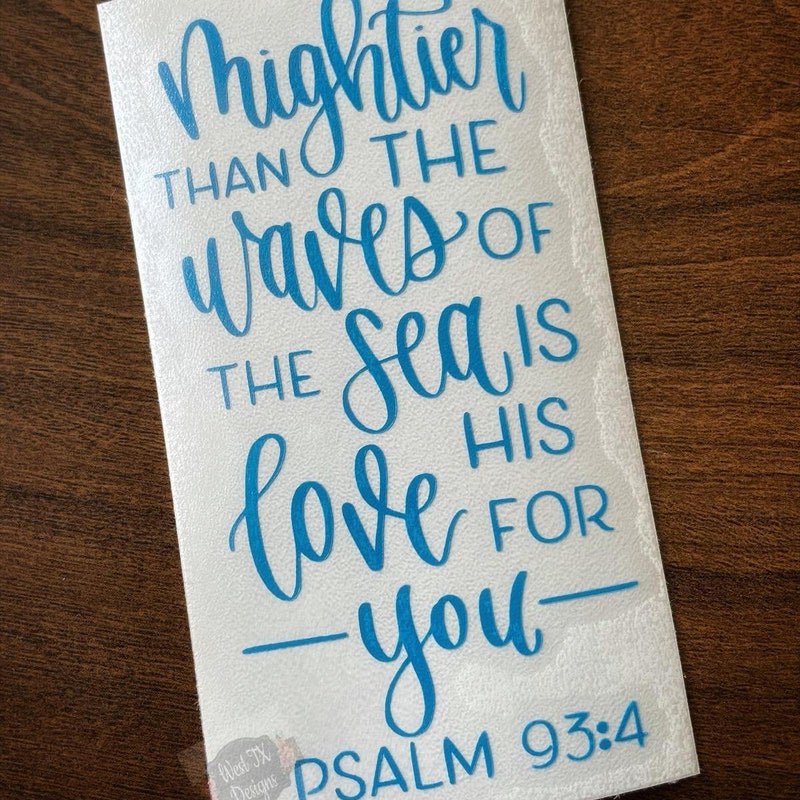 mightier
THAN THE
waves OF
THE sea IS
HIS
love FOR
you
PSALM 93:4
West TX
Designs